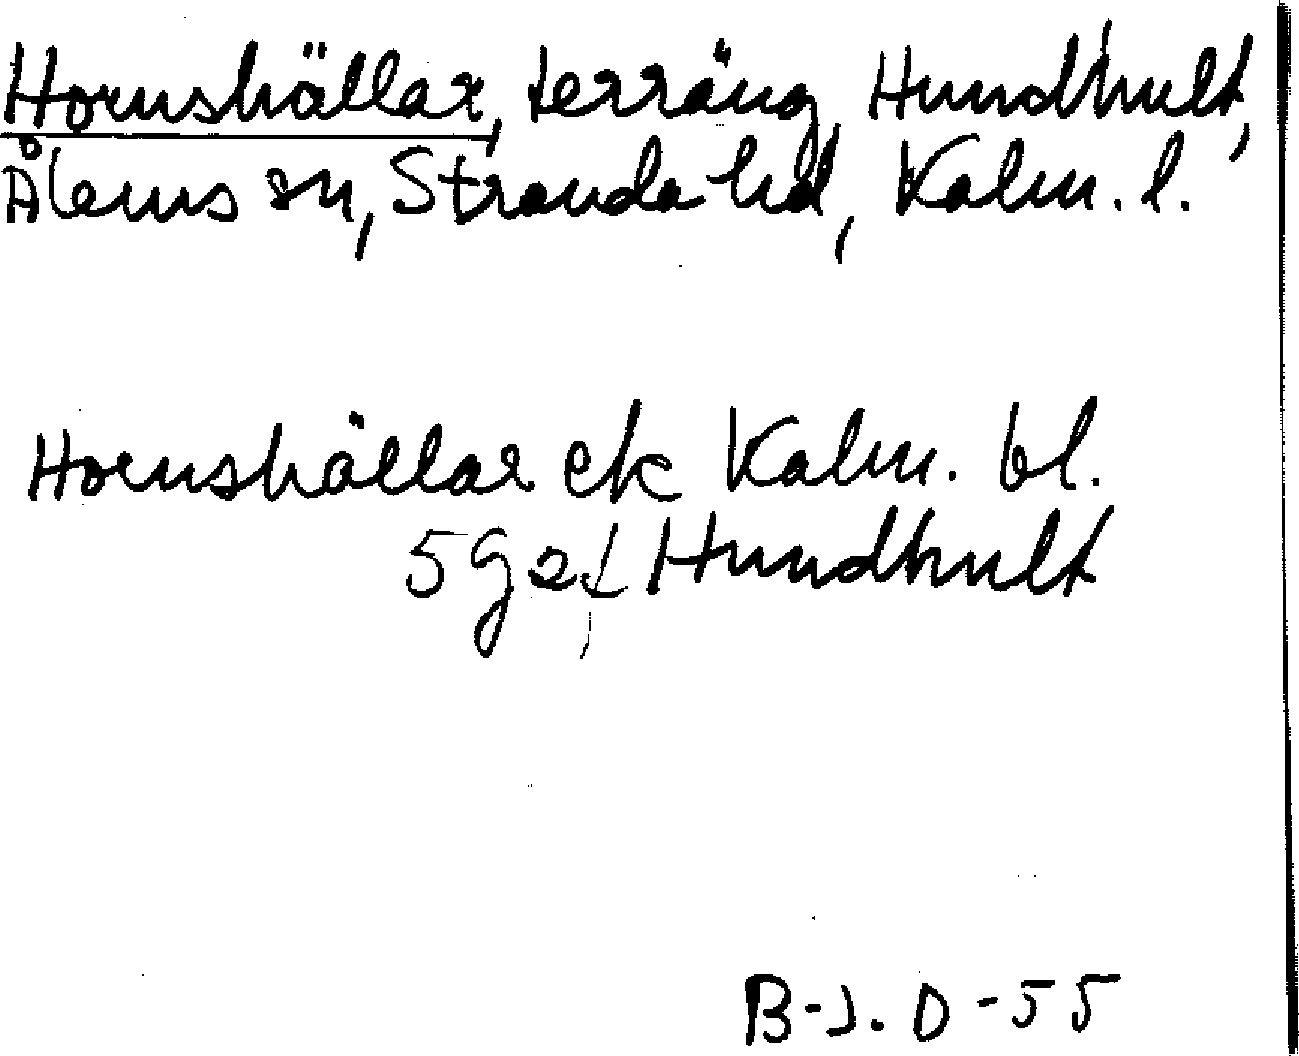 Hornshällar, terräng, Hundhult,
Ålems sn, Stranda hd, Kalm. l.
Hornshällar ek Kalm. bl.
5 g 2 f Hundhult
B-J. O -55